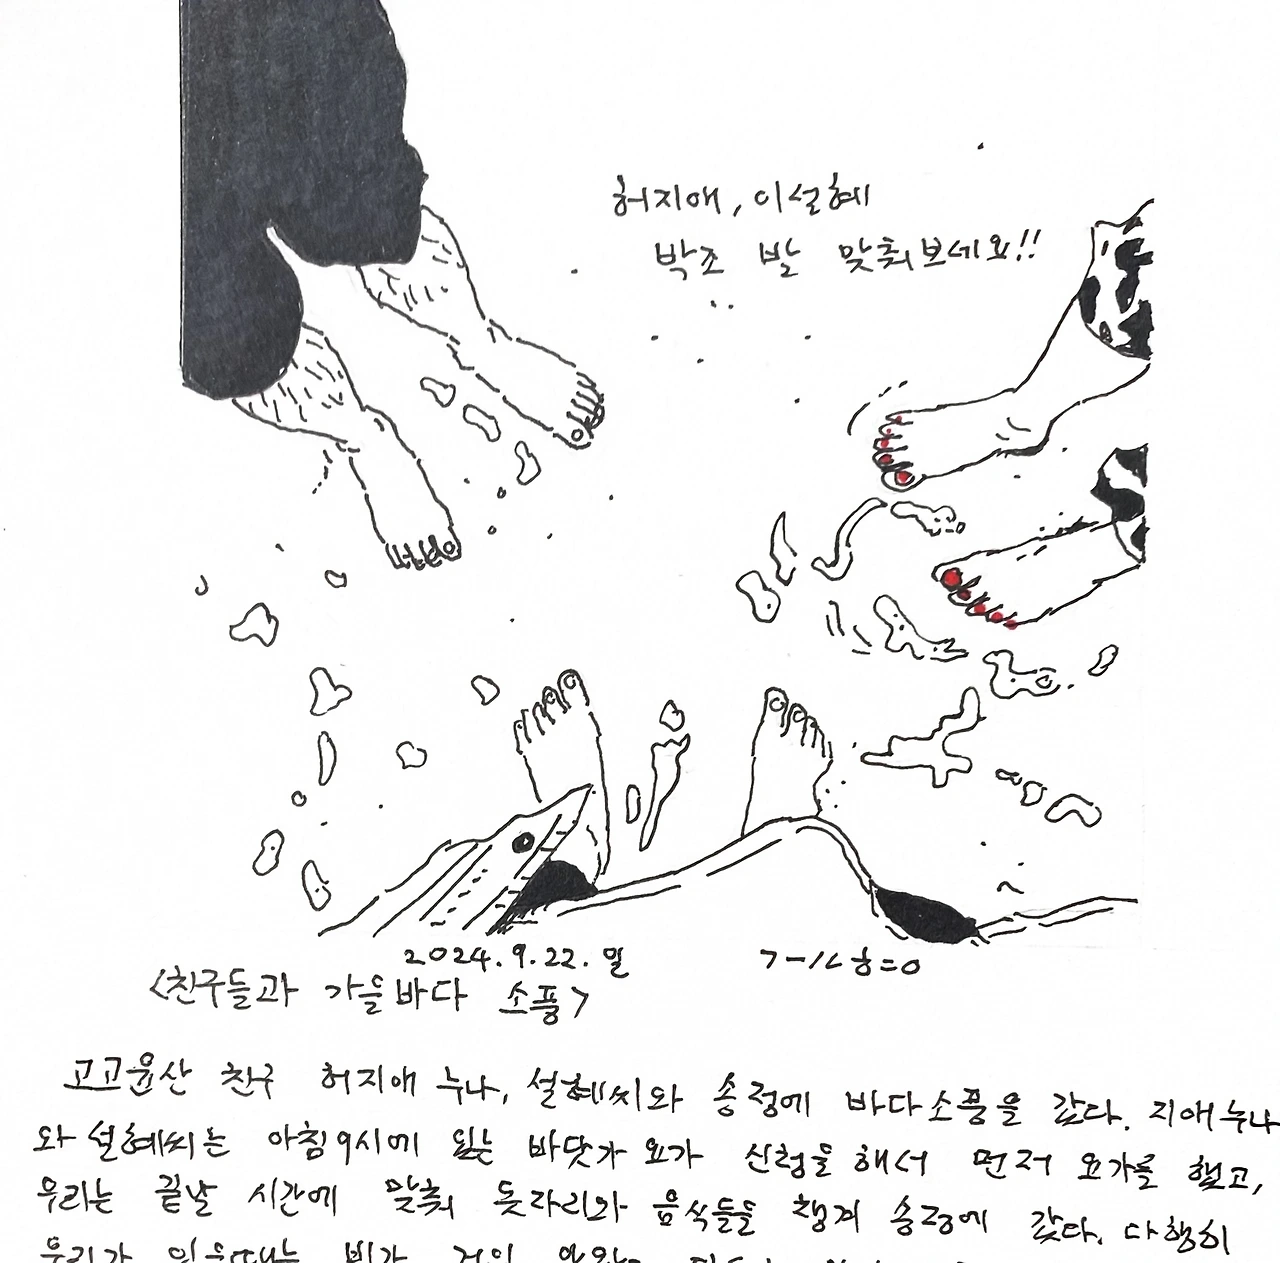 허지애, 이설혜
박조 발 맞춰보세요!!
2024. 9. 22. 일
<친구들과 가을바다 소풍>
고고윤산 친구 허지애 누나, 설혜씨와 송정에 바다소풍을 갔다. 지애누나
와 설혜씨는 아침 9시에 있는 바닷가 요가 신청을 해서 먼저 요가를 했고,
우리는 끝날 시간에 맞춰 돗자리와 음식들을 챙겨 송정에 갔다. 다행히
우리가 있을때는 비가 거의